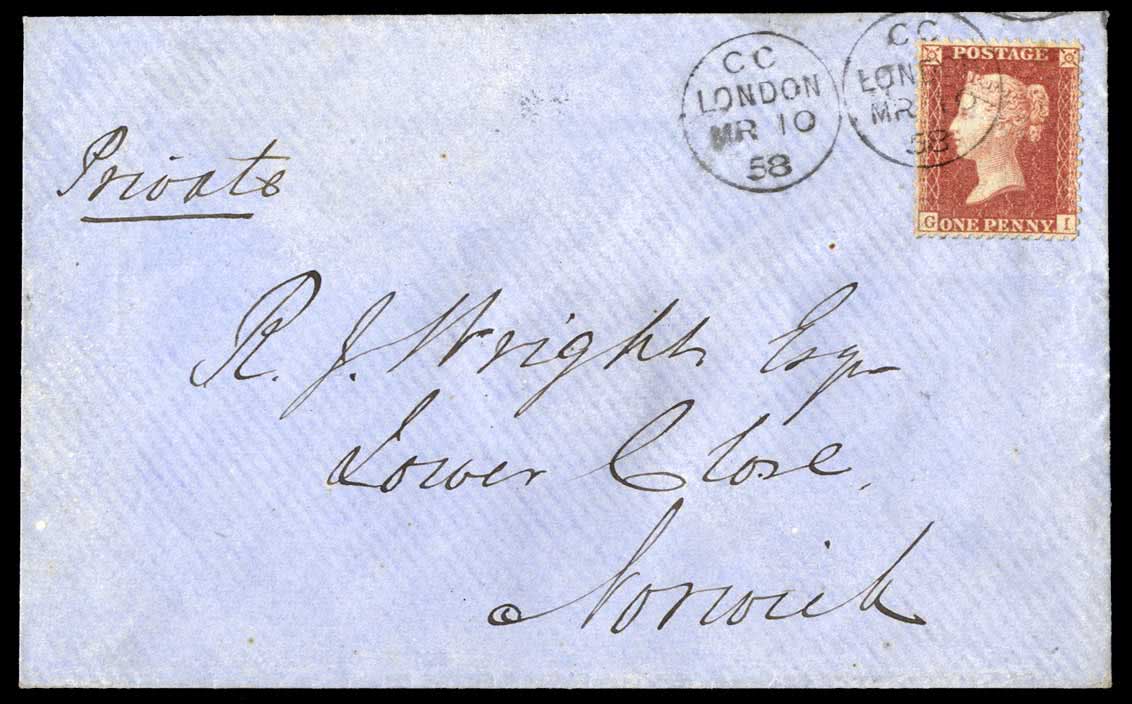 CC
LONDON
MR 10
58
CC
LOND
MR 10
58
POSTAGE
G ONE PENNY I
Private
R. J. Wright Esq
Lower Close,
Norwich